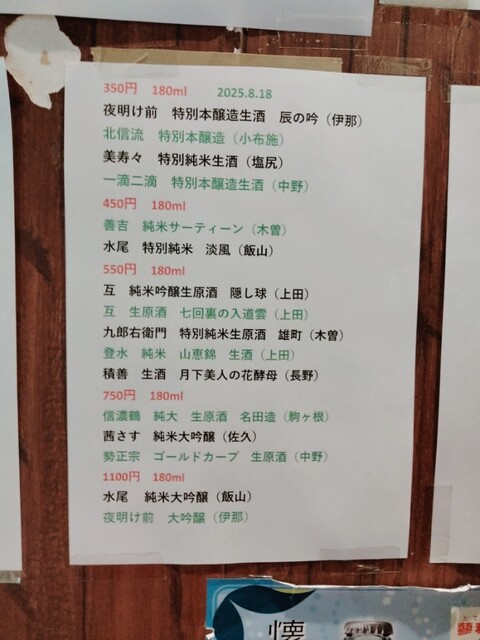 350円　180ml　　2025.8.18
夜明け前　特別本醸造生酒　辰の吟（伊那）
北信流　特別本醸造（小布施）
美寿々　特別純米生酒（塩尻）
一滴二滴　特別本醸造生酒（中野）
450円　180ml
善吉　純米サーティーン（木曽）
水尾　特別純米　淡風（飯山）
550円　180ml
互　純米吟醸生原酒　隠し球（上田）
互　生原酒　七回裏の入道雲（上田）
九郎右衛門　特別純米生原酒　雄町（木曽）
登水　純米　山恵錦　生酒（上田）
積善　生酒　月下美人の花酵母（長野）
750円　180ml
信濃鶴　純大　生原酒　名田造（駒ヶ根）
茜さす　純米大吟醸（佐久）
勢正宗　ゴールドカープ　生原酒（中野）
1100円　180ml
水尾　純米大吟醸（飯山）
夜明け前　大吟醸（伊那）
懐